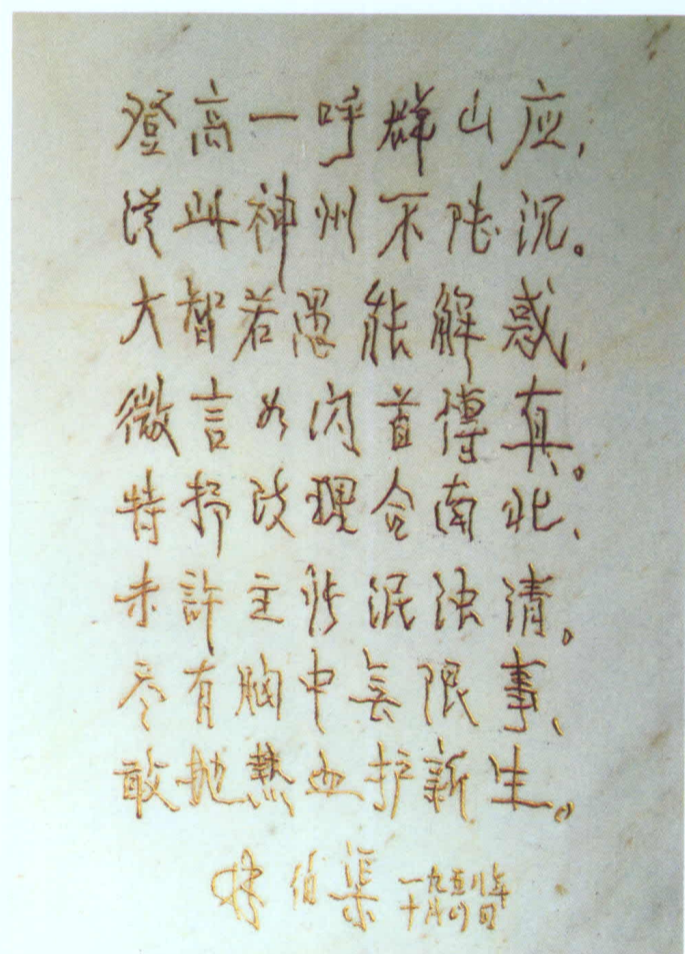 登高一呼群山应,
從此神州不陆沉。
大智若愚能解惑,
微言如首傳真。
特抒政理合南北、
未許主泯浊清。
尽有胸中無限事、
敢抛熱血护新生。
林伯渠
一九五八年
十月日